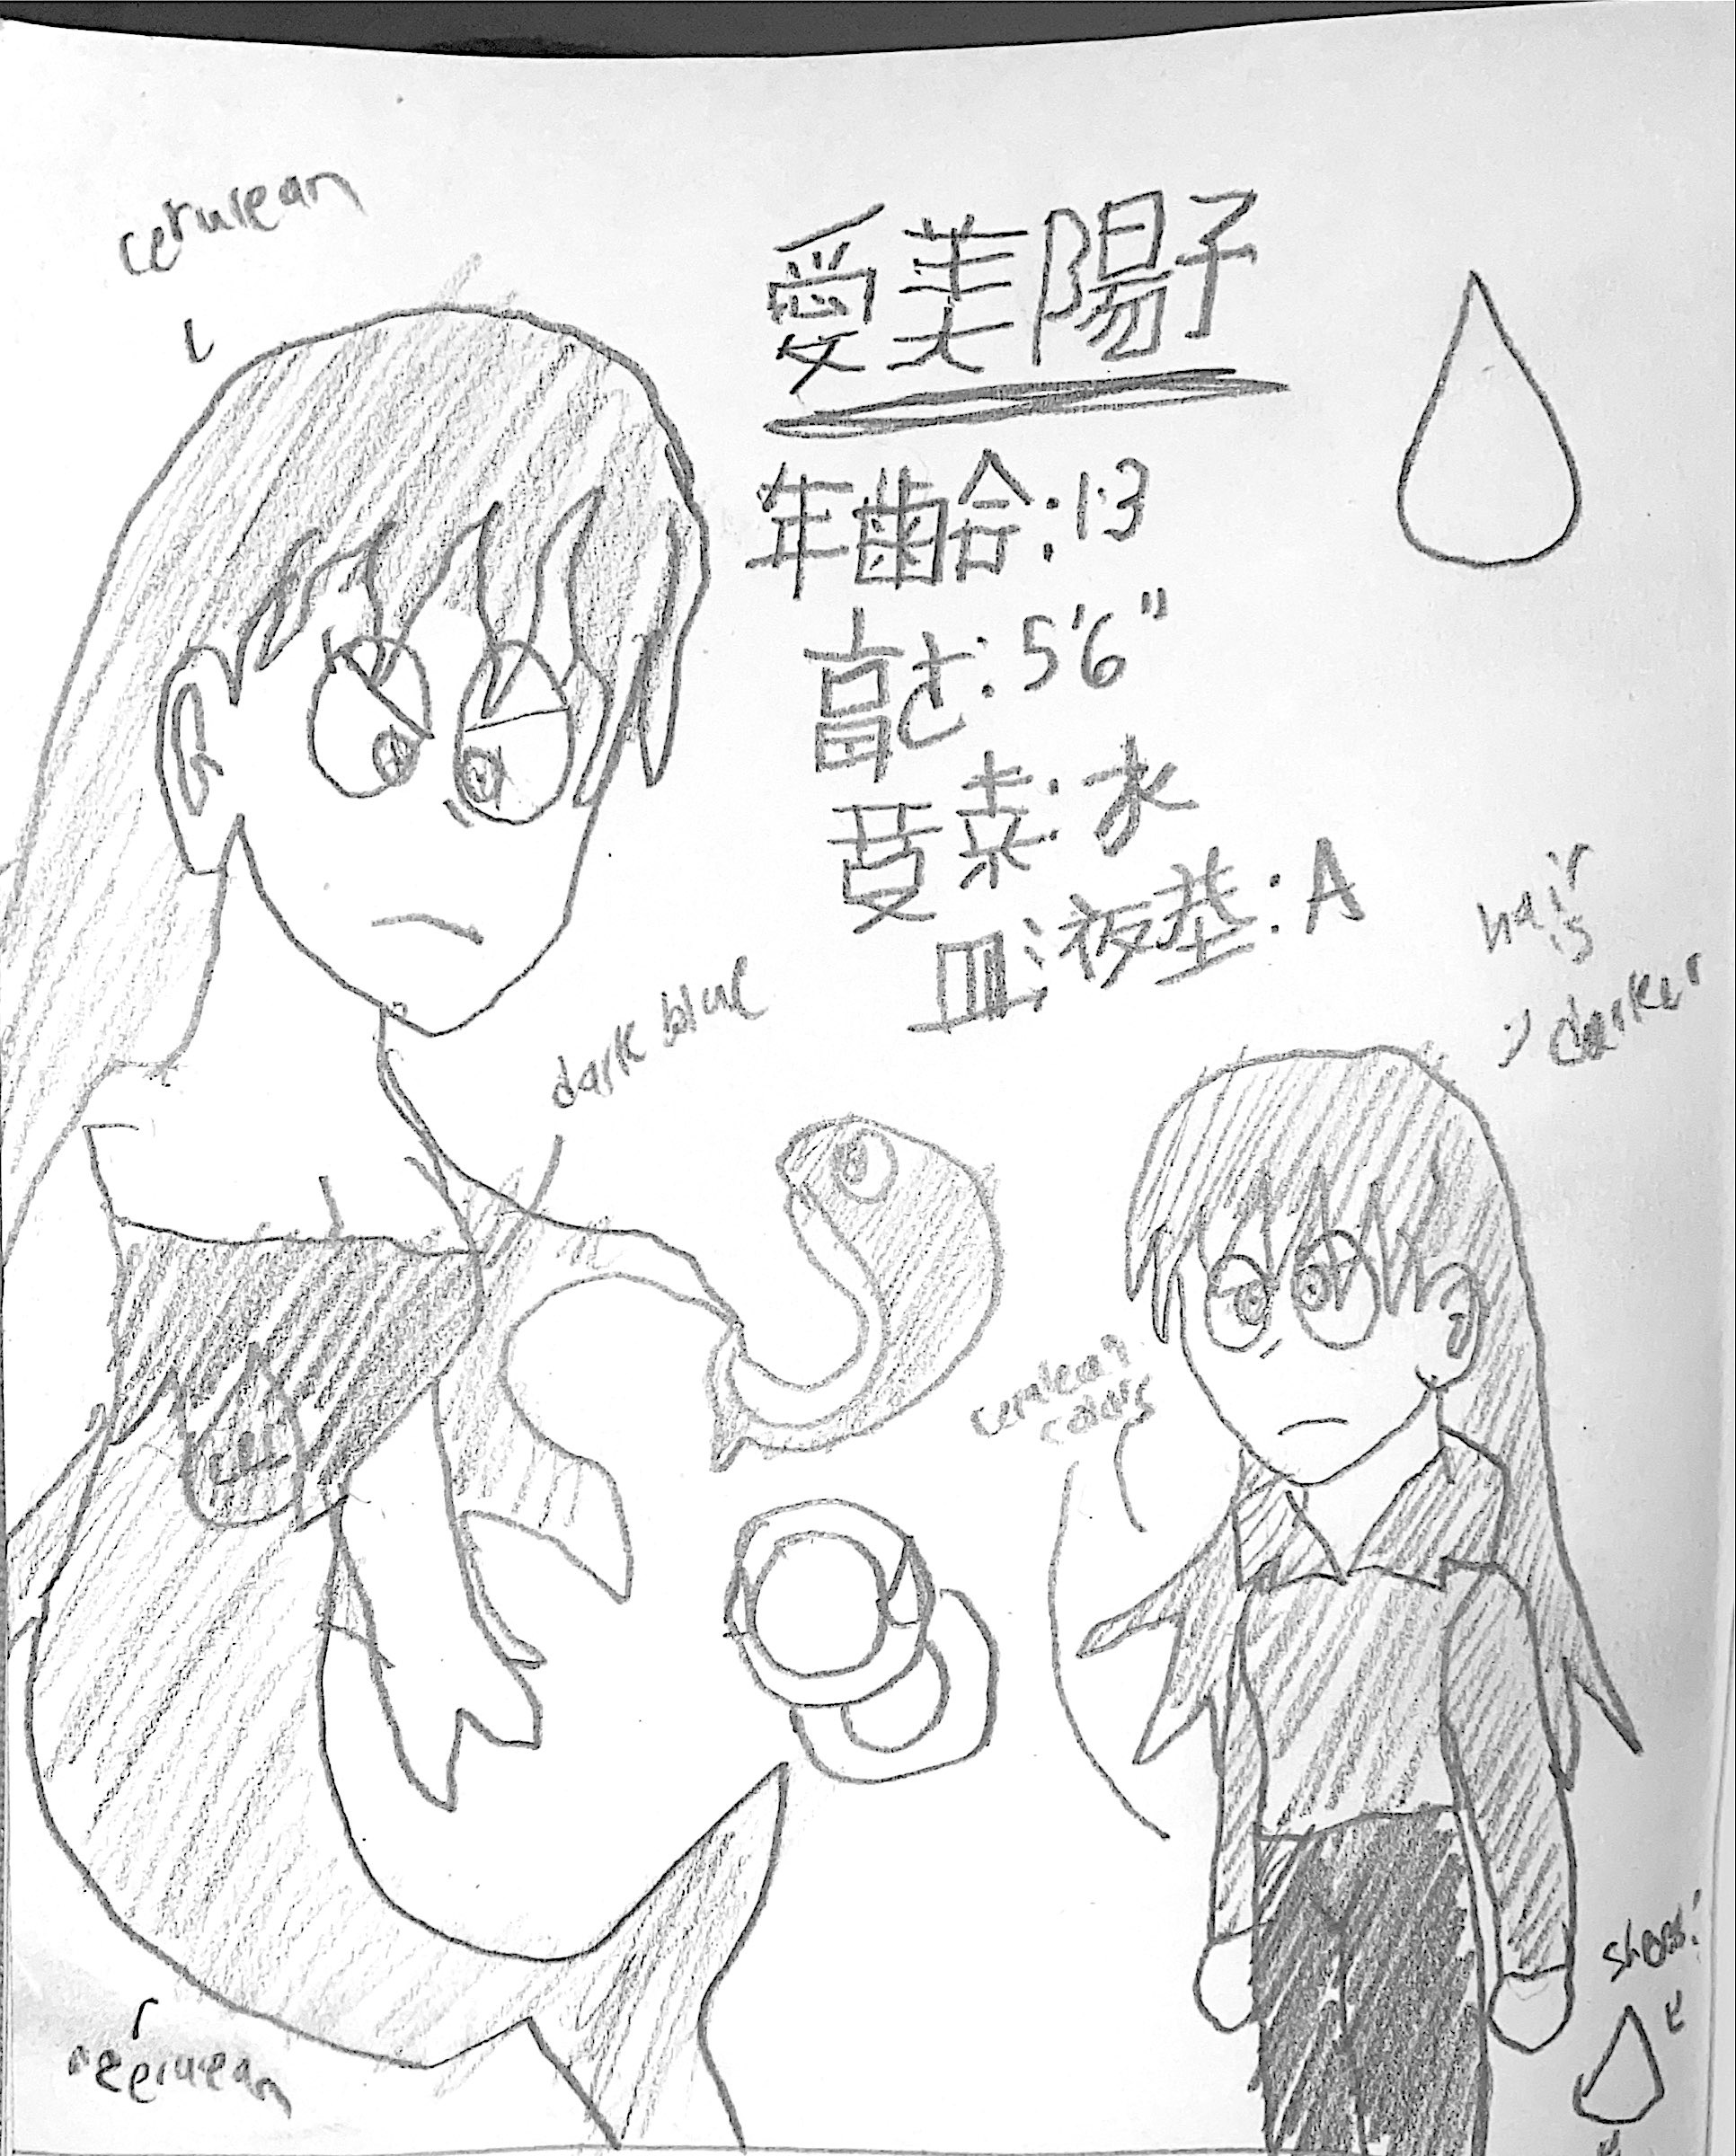 cerulean
愛美陽子
年歯令:13
高さ:5'6"
要素:水
血液型:A
hair
is
darker
dark blue
cerulean
colors
shoes:
cerulean